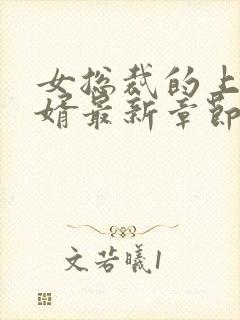 女总裁的上
婿最新章节
文若曦1